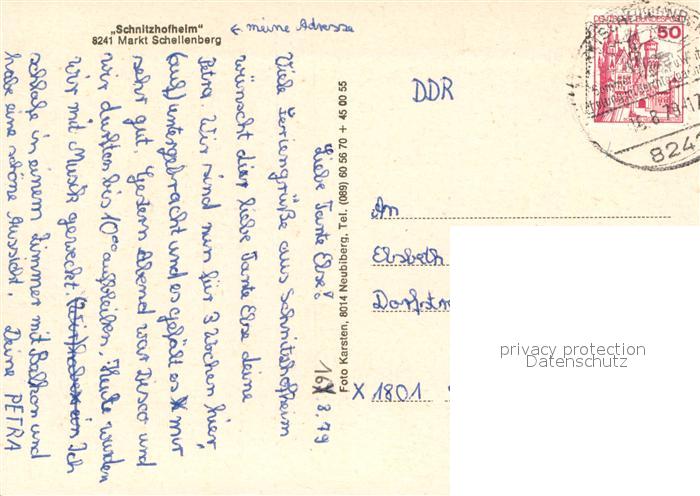 „Schnitzhofheim"
8241 Markt Schellenberg
← meine Adresse
DEUTSCHE BUNDESPOST
50
16.8.79-17
8241
DDR
16 8.79
Liebe Tante Else!
Viele Feriengrüße aus Schnitzhofheim
wünscht dir liebe Tante Else deine
Petra. Wir sind nun für 3 Wochen hier,
(auf) untergebracht und es gefält es mir
sehr gut. Gestern Abend war Disco und
wir durften bis 10⁰⁰ aufbleiben. Heute wurden
wir mit Musik geweckt. Ich
schlafe in einem Zimmer mit Balkon und
habe eine schöne Aussicht. Deine PETRA
Foto Karsten, 8014 Neubiberg, Tel. (089) 60 56 70 + 45 00 55
An
Elsbeth
Dorfstr
X 1801
privacy protection
Datenschutz